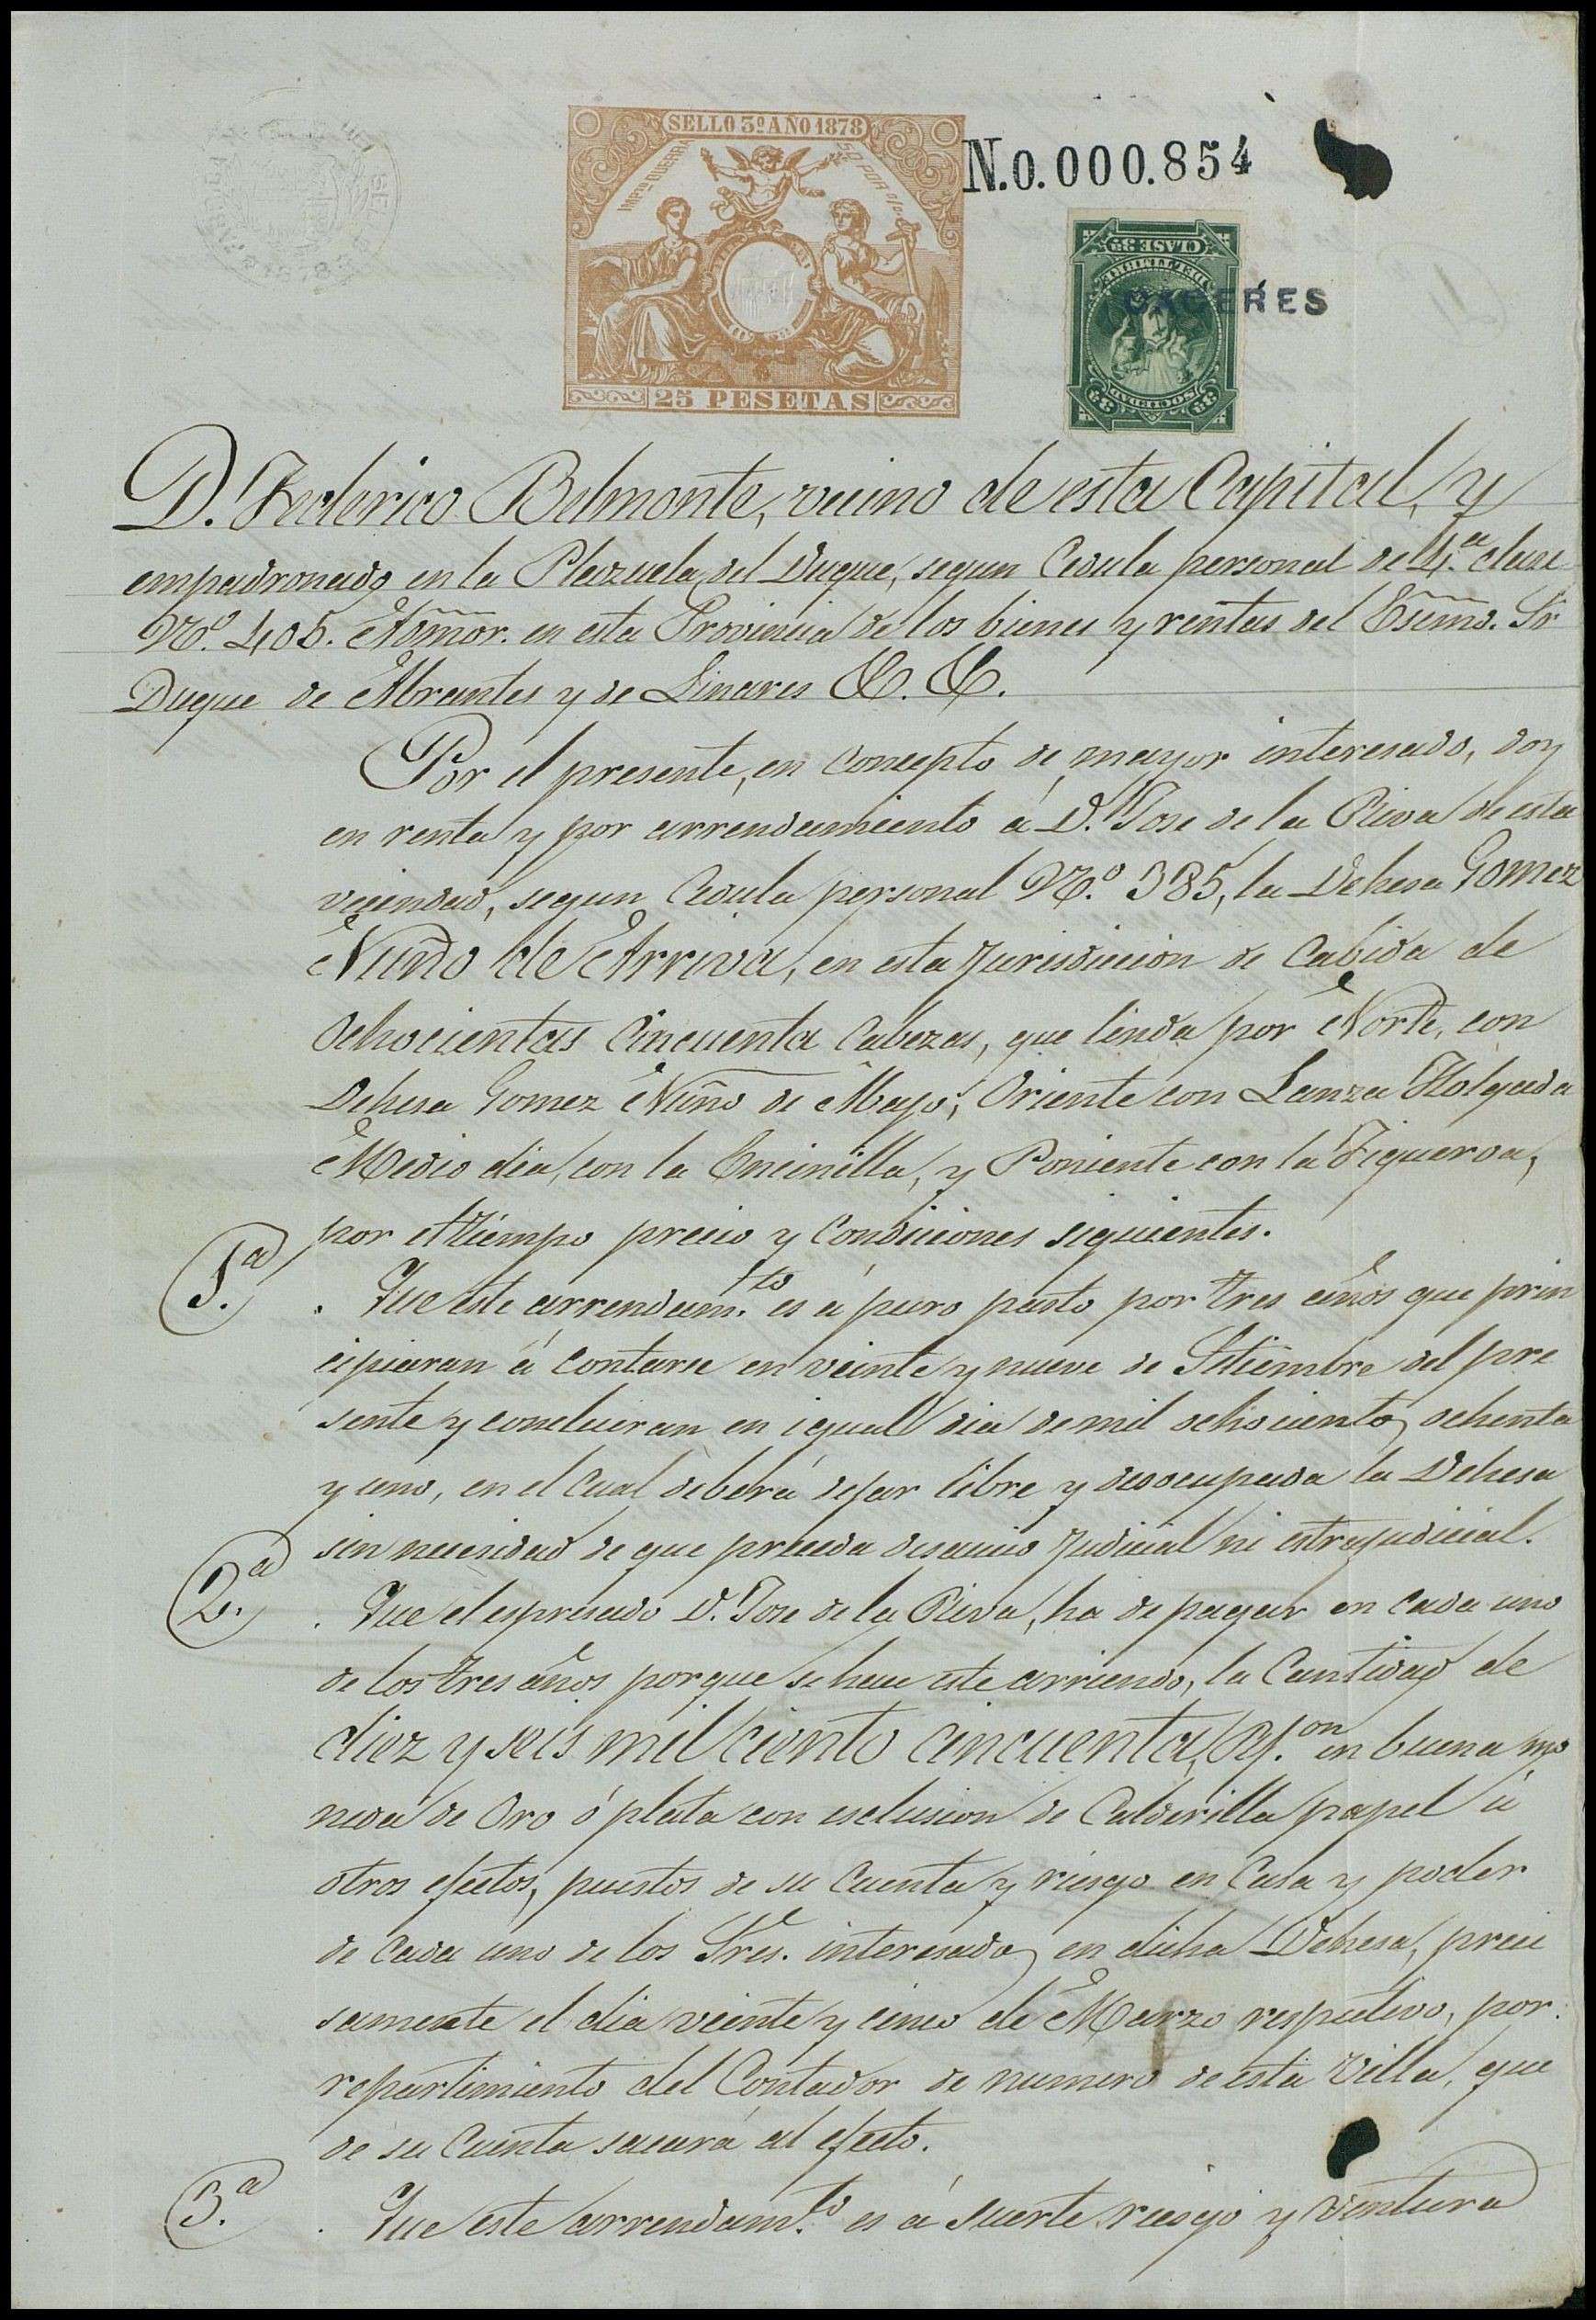 SELLO 3º AÑO 1878
IMPTO GUERRA 50 POR %
25 PESETAS
N.0.000.854
CLASE 33ª
DEL TIMBRE
SOCIEDAD
33 33
CACERES
D. Federico Belmonte, vecino de esta Capital, y
empadronado en la Plazuela del Duque, segun Cedula personal de 4.ª clase
Nº. 405. Admor. en esta Provincia de los bienes y rentas del Esemo. Sr
Duque de Abrantes y de Linares &. &.
Por el presente, en concepto de mayor interesado, doy
en renta y por arrendamiento á D. Jose de la Riva de esta
vecindad, segun Cedula personal Nº. 385, la Dehesa Gomez
Nuño de Arriva, en esta Jurisdiccion de Cabida de
Ochocientas Cincuenta Cabezas, que linda por Norte, con
Dehesa Gomez Nuño de Abajo, Oriente con Lanza Holgada
Medio dia, con la Encinilla, y Poniente con la Figueroa,
por el tiempo precio y Condiciones siguientes.
1.ª . Que este arrendam.to es á puro pasto por tres años que prin
cipiaran á contarse en veinte y nueve de Setiembre del pre
sente y concluiran en igual dia de mil ochocientos ochenta
y uno, en el Cual deberá dejar libre y desocupada la Dehesa
sin necesidad de que preceda desaucio Judicial ni estrajudicial.
2.ª . Que el espresado D. Jose de la Riva, ha de pagar en cada uno
de los tres años porque se hace este arriendo, la Cantidad de
diez y seis mil ciento cincuenta, Rs.on en buena mo
neda de Oro ó plata con esclusion de Calderilla papel ú
otros efectos, puestos de su Cuenta y riesgo en Casa y poder
de cada uno de los Sres. interesados en dicha Dehesa, preci
samente el dia veinte y cinco de Marzo respectivo, por
repartimiento del Contador de numero de esta Villa, que
de su Cuenta sacará al efecto.
3.ª . Que este arrendam.to es á suerte riesgo y ventura